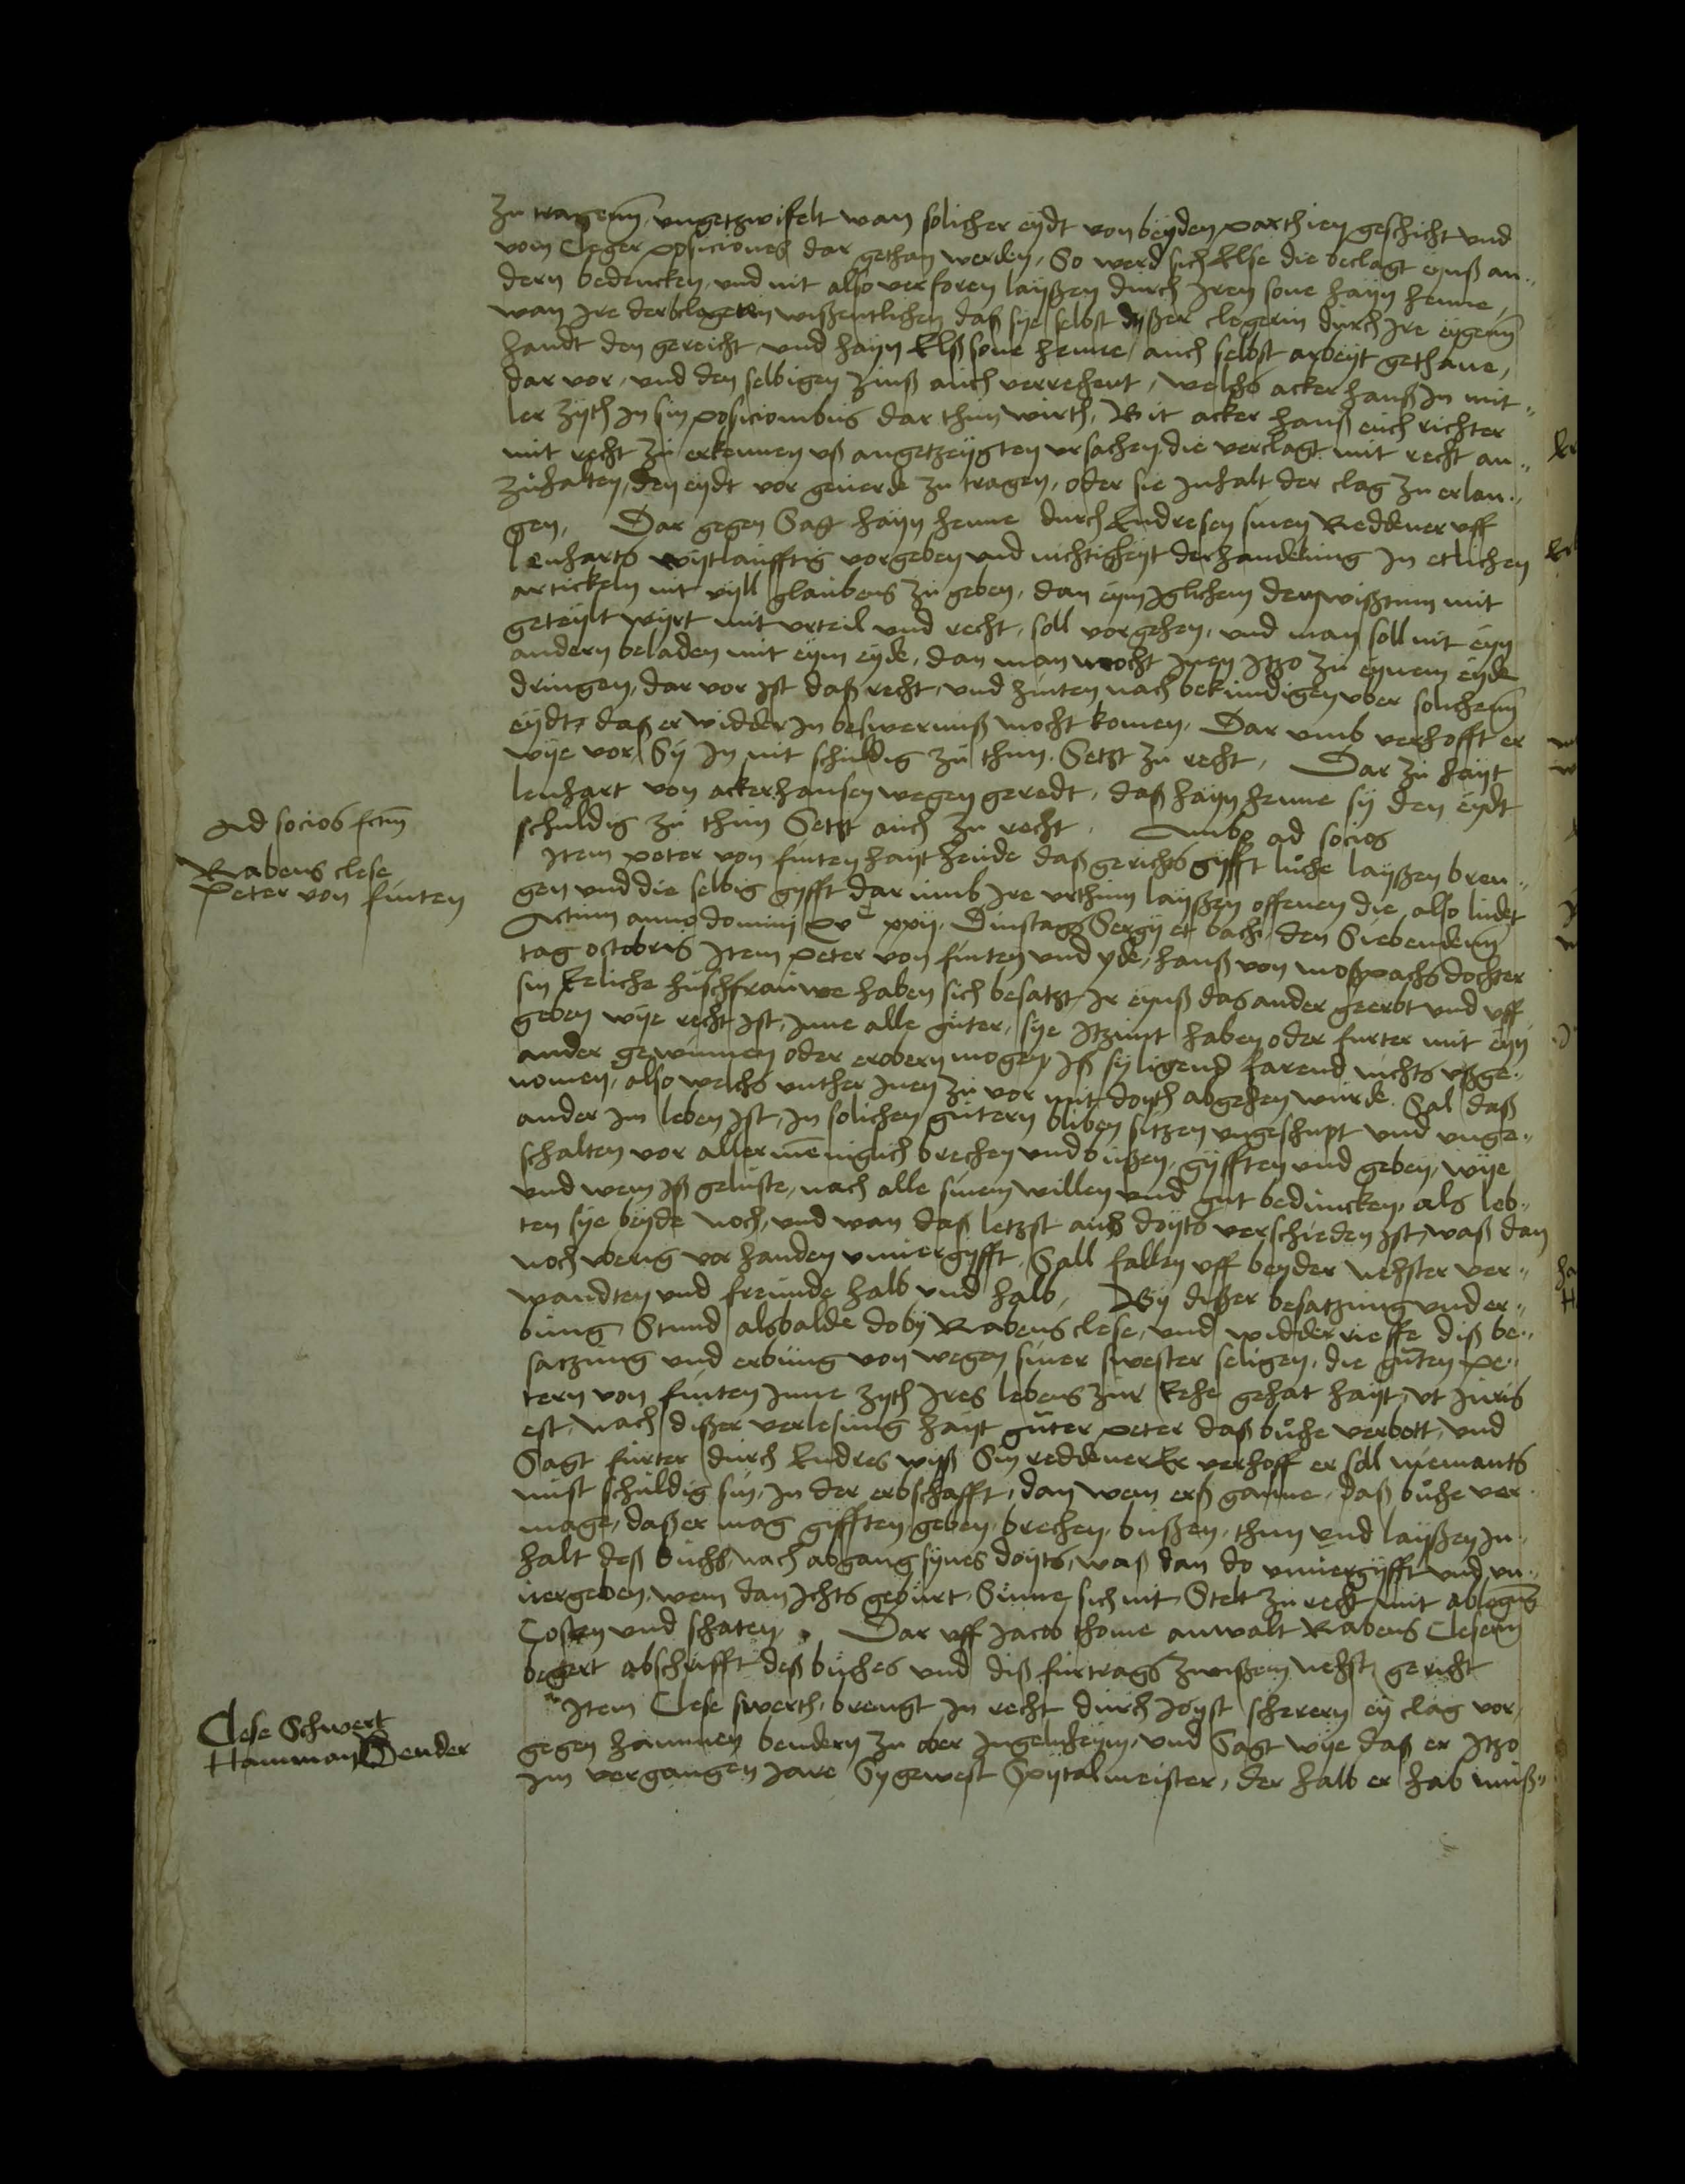 zu tragenn, ungetzwifelt wan solicher eydt von beyden parthien geschicht und
vom Cleger posiciones dar gethan werden, So werd sich Else die beclagt eynß an„
dern bedencken, und nit also verforen layßen durch Iren sone hayn henne,
wan Ire der beclageten wißentlichen daß sye selbst dyßer clegerin durch Ire eygenn
handt den gereicht und hayn Elß sone henne auch selbst arbeyt gethane,
dar vor, und den selbigen Zinß auch verrechent, welchs acker hanß In mit„
ler Zyth In sin posicionibus dar thun wirth, Bit acker hanß euch richter
mit recht zu erkennen uß angetzeygten ursachen die verclagt mit recht an„
zuhalten, den eydt vor geuerde zu tragen, oder sie Inhalt der clag zu erlan„
gen, Dar gegen Sagt hayn henne durch Endresen sinen Reddener uff
lenharts wytlaufftig vorgeben und nichtigkeyt der handelung In etlichen
artickeln nit vyll glaubens zu geben, dan eym Iglichem der wißtum mit
geteylt wyrt mit urteil und recht, soll vorgehen, und man soll nit eyn
andern beladen mit eym eyde, dan man mocht Inen Itzo zu eynem eyde
dringen, dar vor Ist daß recht und hinten nach bekundigen uber solichenn
eydt, daß er widder In beswernuß mocht komen, Dar umb verhofft er
wye vor, Sy In nit schuldig zu thun. Setzt zu recht, Dar zu hayt
lenhart von ackerhansen wegen geredt, daß hayn henne sy den eydt
schuldig zu thun Setzt auch zu recht. Ambo ad socios
Ad socios fctm
Rabens clese
Peter von finten
Item peter von finten hayt heude daß gerichts gyfft buche layßen bren„
gen und die selbig gyfft dar umb Ire urthun layßen offenen die also ludet
Actum anno domini xvᶜ xxij. Dinstags Sergij et bachi, den Siebendenn
tag octobris Item peter von finten und yde, hanß von moßpachs dochter
sin Eeliche hußfrauwe haben sich besatzt, Ir eynß das ander geerbt und uff
geben wye recht Ist, Inne alle guter, sye Itzunt haben oder furter mit eyn
ander gewinnen oder erobern mogen, Iß sy ligend farend nichts ußge„
nomen, also welchs unther Inen zu vor mit doyth abgehen wurde. Sal daß
ander Im leben Ist, In solichen gutern bliben sitzen ungeschupt und unge„
schalten vor allermeniglich brechen und bußen, gyfften und geben, wye
und wem Iß geluste, nach alle sinem willen und gut beduncken, als leb„
ten sye beyde noch, und wan daß letzst auch doyts verschieden Ist, waß dan
noch uberig vor handen unuergyfft, Sall fallen uff beyder nehster ver„
wandten und freunde halb und halb, By dißer besatzung und er„
bung Stund alsbalde doby Rabens clese, und widderrieffe diß be„
satzung und erbung von wegen siner swester seligen, die guten pe„
tern von finten Inne zyth Ires lebens zur Eehe gehat hayt, ut Iuris
est, nach dißer verlesung hayt guter peter daß buche verbott, und
Sagt furter durch Endres wiß Sin reddener Er verhoff er soll niemants
nust schuldig sin, In der erbschafft, dan wem erß gonne, daß buche ver„
mage, daß er mag gyfften, geben, brechen, bußen, thun und layßen In„
halt deß buchs, nach abgang synes doyts, waß dan do unuergyfft und un„
uergeben, wem dan Ichts geburt, Sunne sich nit Stelt zu recht mit ablegung
Costen und schaten, Dar uff Jacob thome anwalt Rabens Clesenn
begert abschrifft deß buches und diß furtrags zwißem nehst gericht
Clese Schwert
Hamman Bender
Item Clese swerth, brengt In recht durch Joyst scherern eyn clag vor,
gegen hammen bendern zu ober Ingelnheym, und Sagt wye daß er Itzo
Im vergangen Jare Sy gewest Spytalmeister, der halb er hab muß„